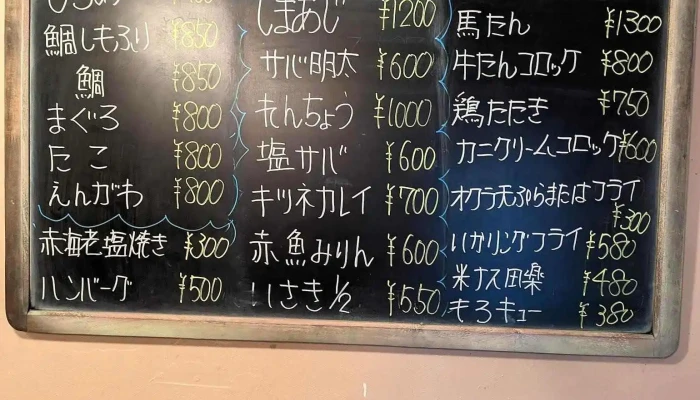 鯛しもふり ¥850
鯛 ¥850
まぐろ ¥800
たこ ¥800
えんがわ ¥800
赤海老塩焼き ¥300
ハンバーグ ¥500
しまあじ ¥1200
サバ明太 ¥600
れんちょう ¥1000
塩サバ ¥600
キツネカレイ ¥700
赤魚みりん ¥600
いさき½ ¥550
馬たん ¥1300
牛たんコロッケ ¥800
鶏たたき ¥750
カニクリームコロッケ ¥600
オクラ天ぷらまたはフライ
¥300
いかリングフライ ¥580
米ナス田楽 ¥480
もろキュー ¥380